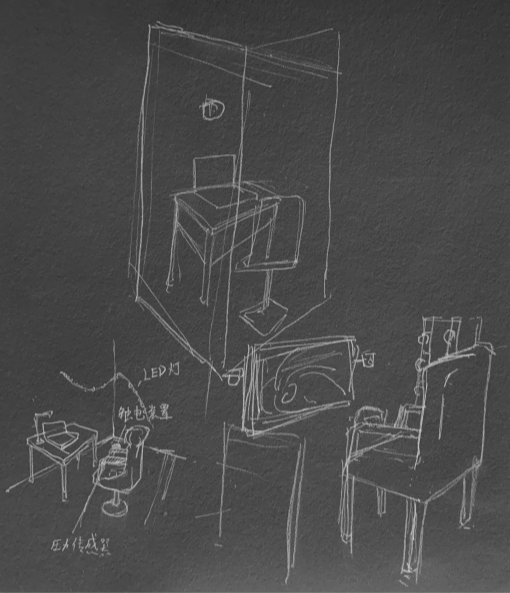 LED灯
触电装置
压力传感器